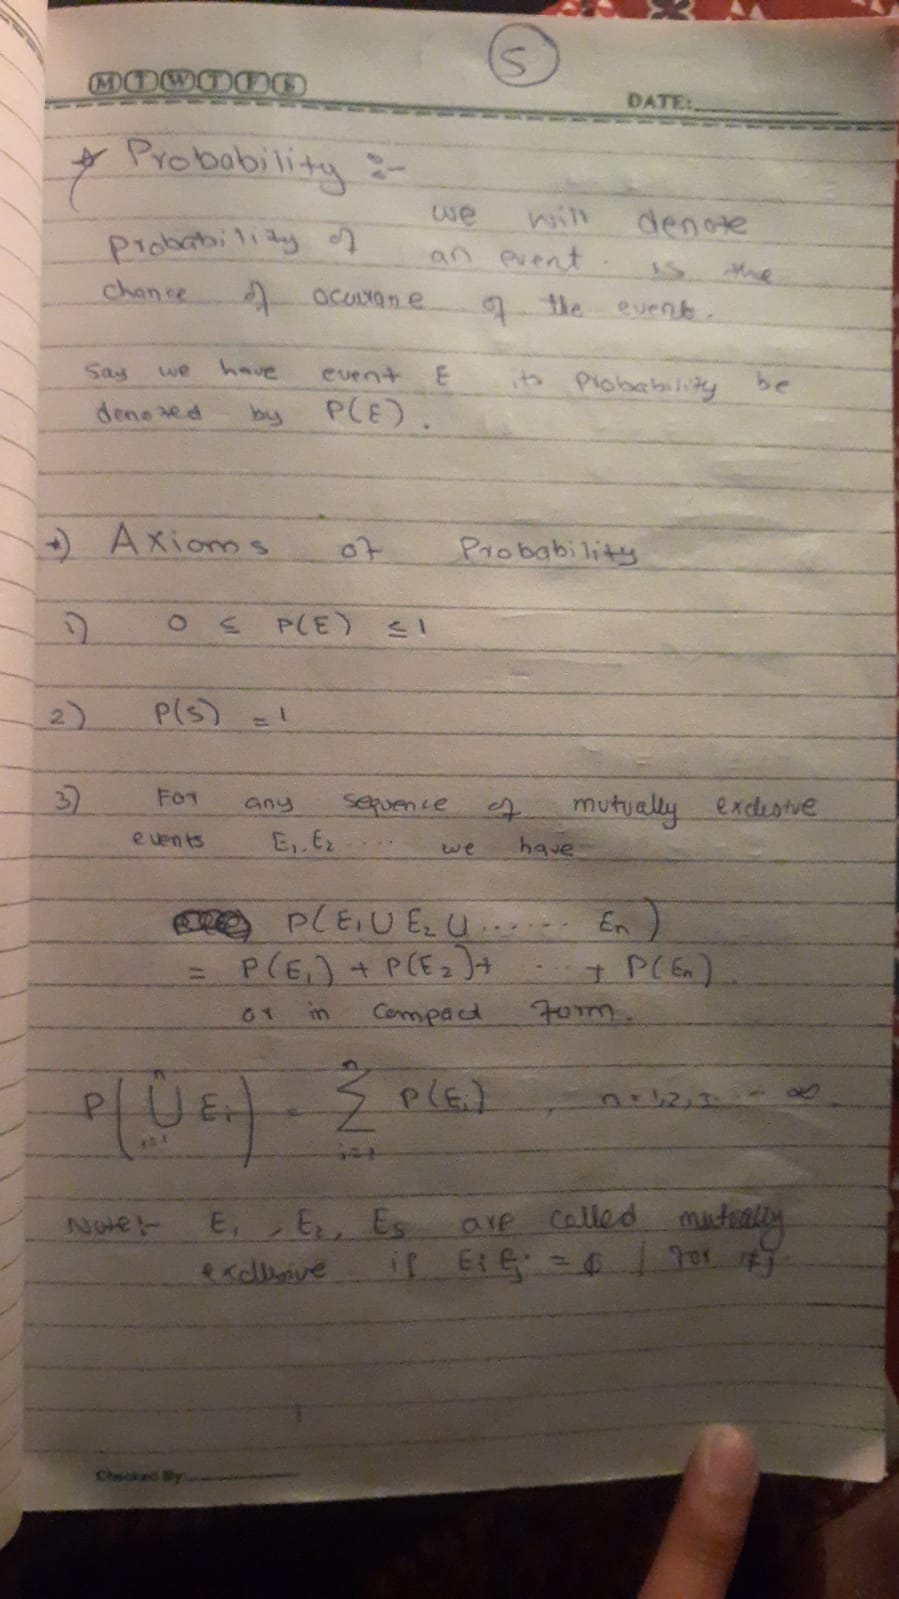 5
M T W T F S
DATE:
Probability :-
we will denote
Probability of an event is the
chance of ocurrane of the event.
Say we have event E its Probability be
denoted by P(E).
*) Axioms of Probability
1) 0 ≤ P(E) ≤ 1
2) P(S) = 1
3) For any sequence of mutually exclusive
events E₁, E₂ .... we have
P(E₁ U E₂ U ...... Eₙ)
= P(E₁) + P(E₂)+ ... + P(Eₙ).
or in Compact form.
P(⋃ⁿᵢ₌₁ Eᵢ) = ∑ⁿᵢ₌₁ P(Eᵢ), n = 1,2,3 - - ∞
Note:- E₁, E₂, E₃ are called mutually
exclusive if Eᵢ Eⱼ = ϕ | for i≠j
Checked By: